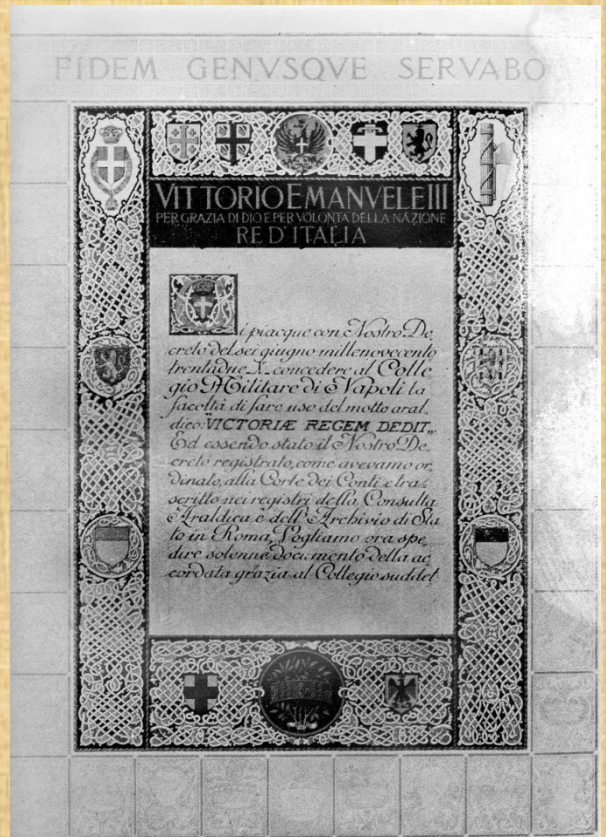 FIDEM GENVSQVE SERVABO
VITTORIO EMANVELE III
PER GRAZIA DI DIO E PER VOLONTA DELLA NAZIONE
RE D'ITALIA
i piacque con Nostro De
creto del sei giugno millenovecento
trentadue X concedere al Colle
gio Militare di Napoli la
facoltà di fare uso del motto aral.
dico: VICTORIÆ REGEM DEDIT„
Ed essendo stato il Nostro De
creto registrato, come avevamo or
dinato, alla Corte dei Conti e tra
scritto nei registri della Consulta
Araldica e dell'Archivio di Sta
to in Roma, Vogliamo ora spe
dire solenne documento della ac
cordata grazia al Collegio suddet